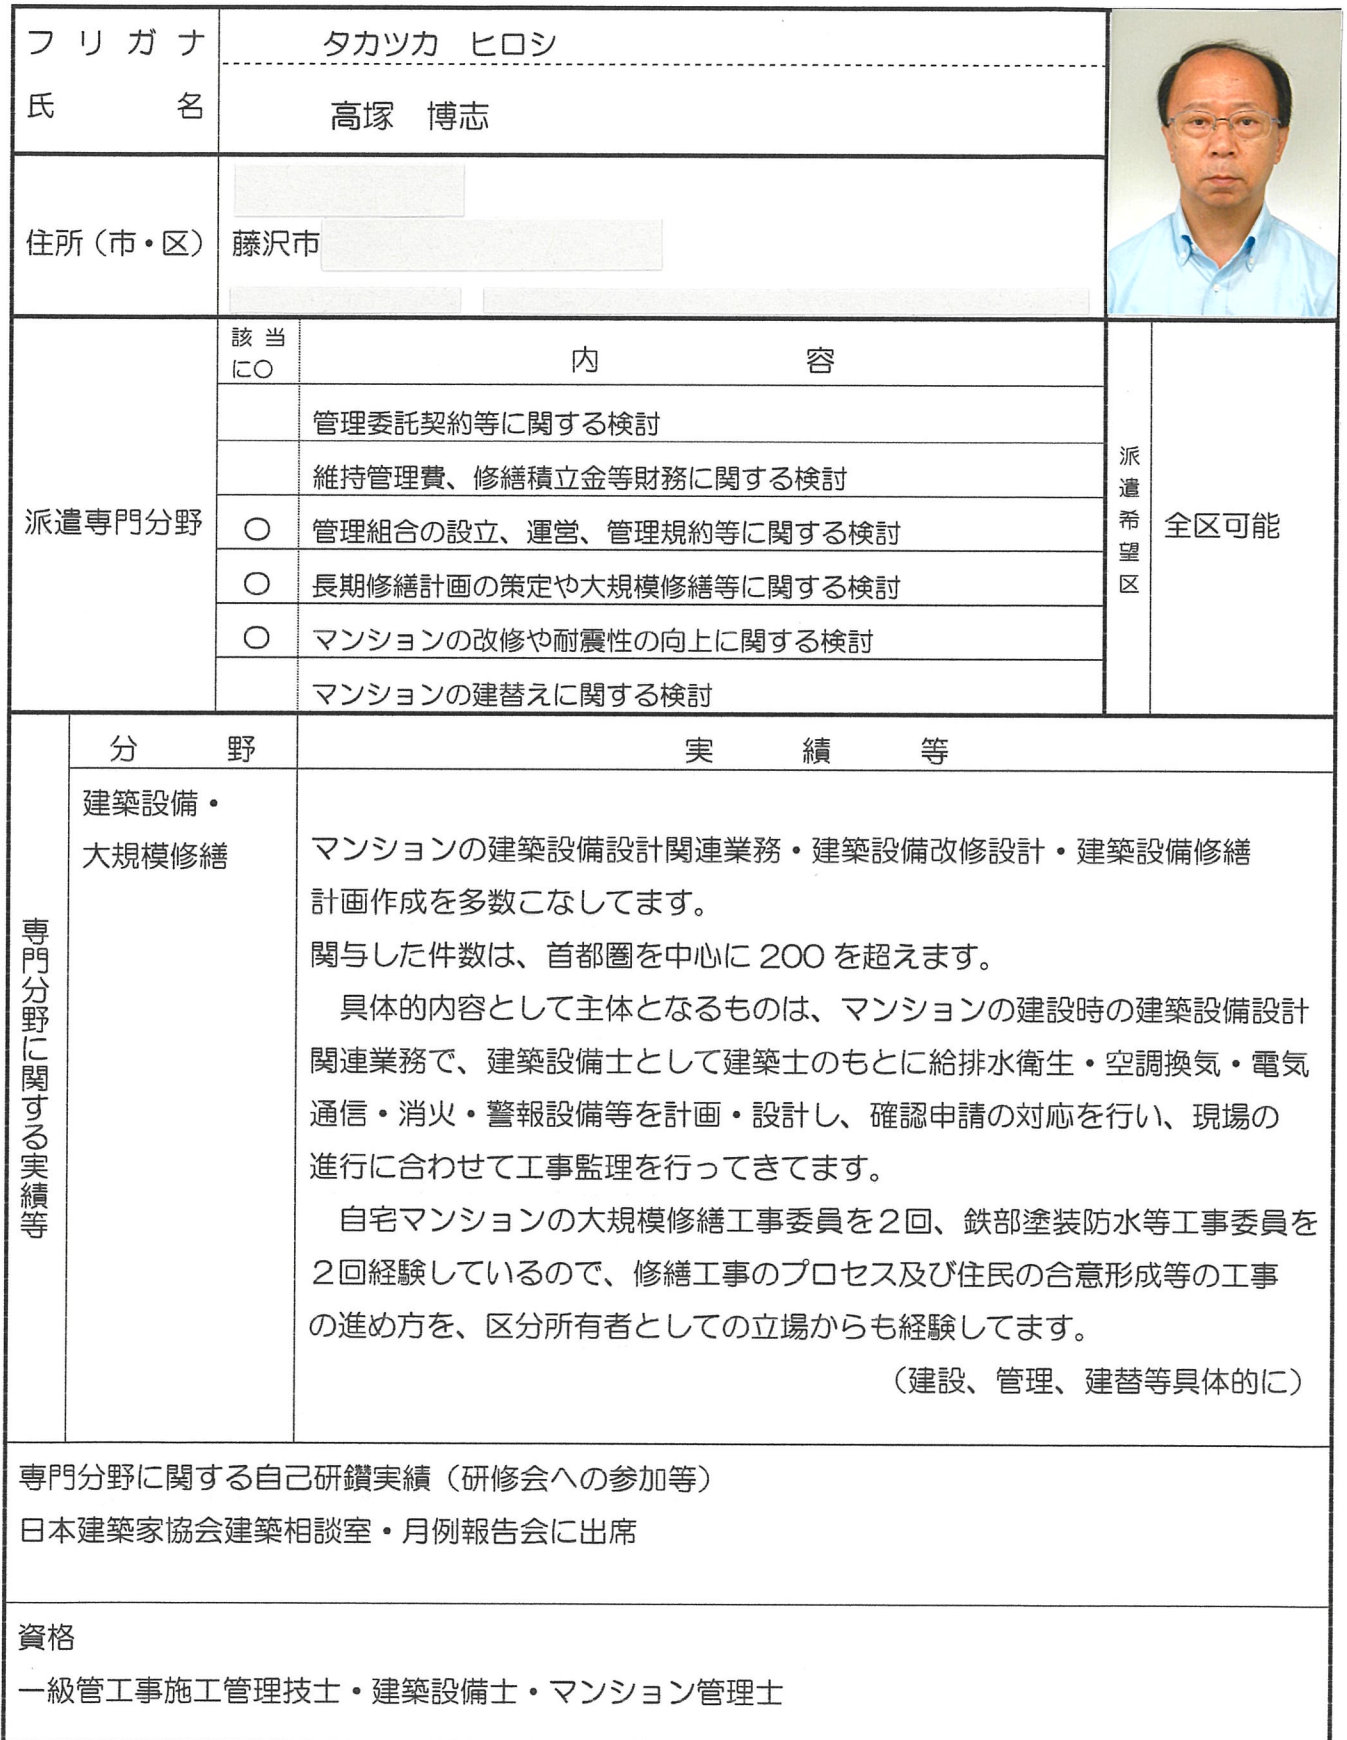 フリガナ タカツカ ヒロシ
氏名 高塚 博志
住所（市・区） 藤沢市
派遣専門分野
該当に〇 内容
管理委託契約等に関する検討
維持管理費、修繕積立金等財務に関する検討
〇 管理組合の設立、運営、管理規約等に関する検討
〇 長期修繕計画の策定や大規模修繕等に関する検討
〇 マンションの改修や耐震性の向上に関する検討
マンションの建替えに関する検討
派遣希望区 全区可能
専門分野に関する実績等
分野 実績等
建築設備・
大規模修繕
マンションの建築設備設計関連業務・建築設備改修設計・建築設備修繕
計画作成を多数こなしてます。
関与した件数は、首都圏を中心に 200 を超えます。
具体的内容として主体となるものは、マンションの建設時の建築設備設計
関連業務で、建築設備士として建築士のもとに給排水衛生・空調換気・電気
通信・消火・警報設備等を計画・設計し、確認申請の対応を行い、現場の
進行に合わせて工事監理を行ってきてます。
自宅マンションの大規模修繕工事委員を２回、鉄部塗装防水等工事委員を
２回経験しているので、修繕工事のプロセス及び住民の合意形成等の工事
の進め方を、区分所有者としての立場からも経験してます。
（建設、管理、建替等具体的に）
専門分野に関する自己研鑽実績（研修会への参加等）
日本建築家協会建築相談室・月例報告会に出席
資格
一級管工事施工管理技士・建築設備士・マンション管理士